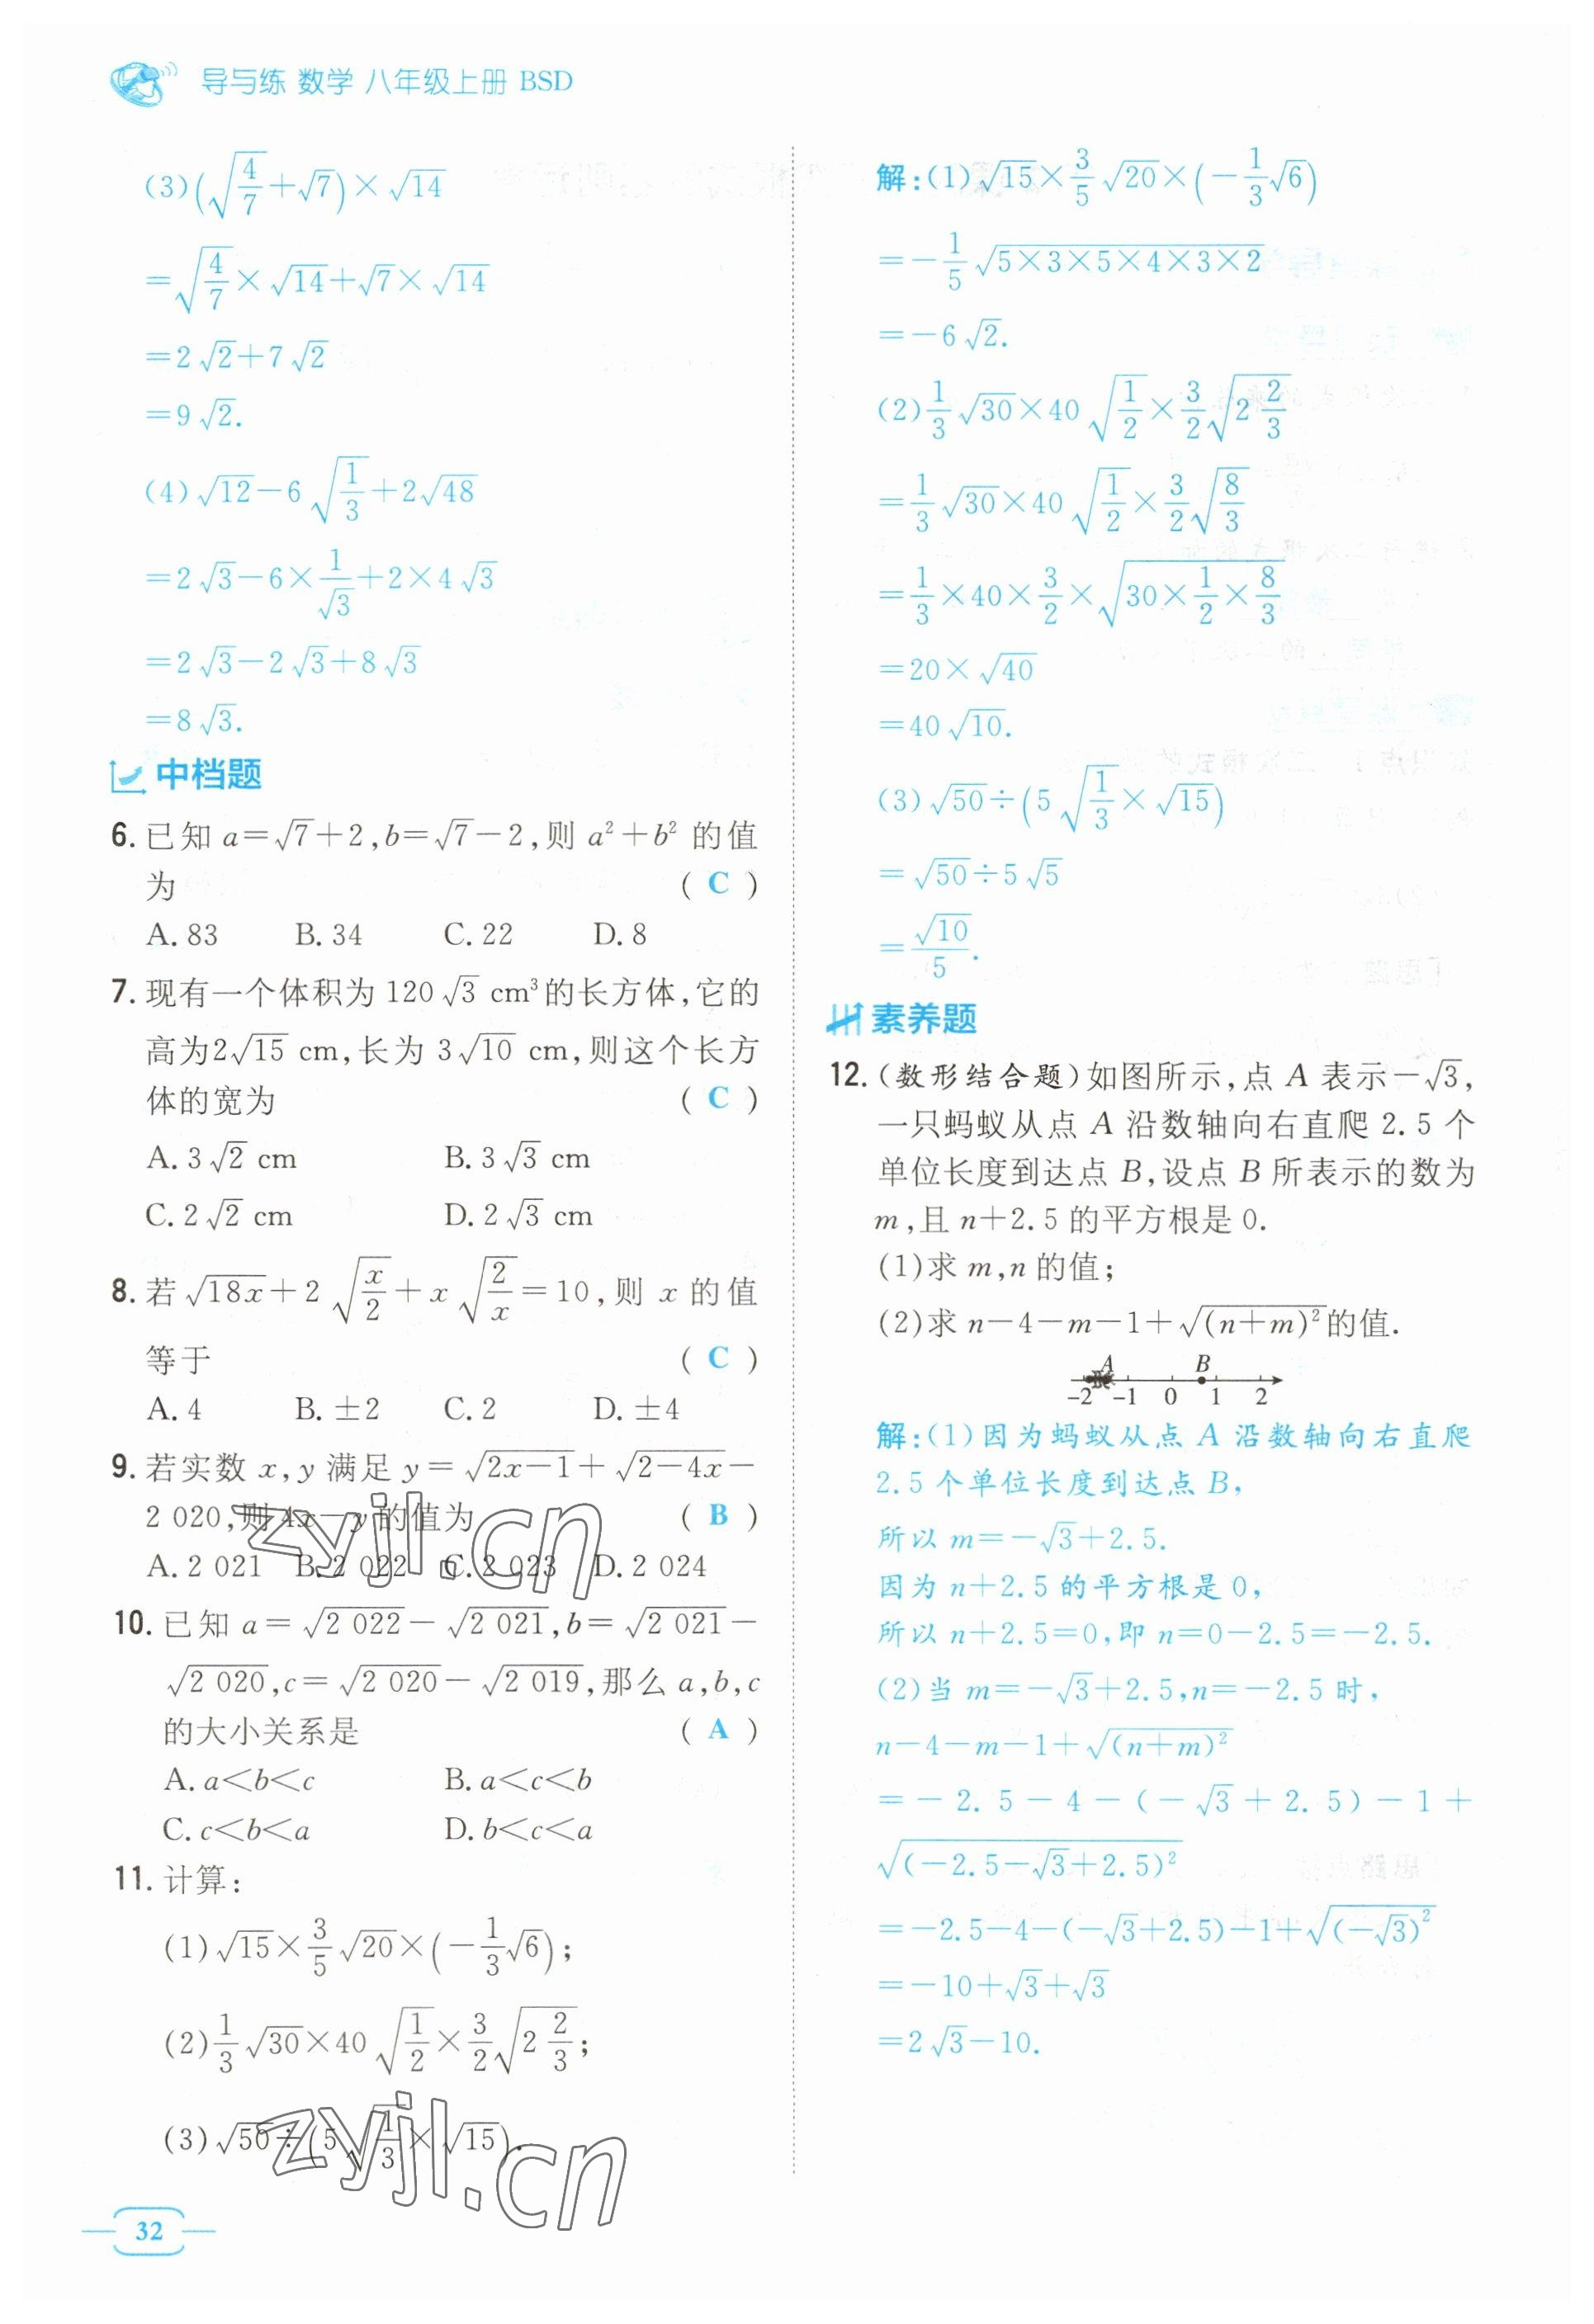 导与练 数学 八年级上册 BSD
(3)(√(4/7)+√7)×√14
=√(4/7)×√14+√7×√14
=2√2+7√2
=9√2.
(4)√12-6√(1/3)+2√48
=2√3-6×1/√3+2×4√3
=2√3-2√3+8√3
=8√3.
中档题
6. 已知 a=√7+2,b=√7-2,则 a²+b² 的值
为 ( C )
A. 83 B. 34 C. 22 D. 8
7. 现有一个体积为 120√3 cm³的长方体,它的
高为2√15 cm,长为 3√10 cm,则这个长方
体的宽为 ( C )
A. 3√2 cm B. 3√3 cm
C. 2√2 cm D. 2√3 cm
8. 若 √(18x)+2√(x/2)+x√(2/x)=10,则 x 的值
等于 ( C )
A. 4 B. ±2 C. 2 D. ±4
9. 若实数 x,y 满足 y=√(2x-1)+√(2-4x)-
2 020,则 4x-y 的值为 ( B )
A. 2 021 B. 2 022 C. 2 023 D. 2 024
10. 已知 a=√(2 022)-√(2 021),b=√(2 021)-
√(2 020),c=√(2 020)-√(2 019),那么 a,b,c
的大小关系是 ( A )
A. a<b<c B. a<c<b
C. c<b<a D. b<c<a
11. 计算:
(1)√15×3/5√20×(-1/3√6);
(2)1/3√30×40√(1/2)×3/2√(2 2/3);
(3)√50÷(5√(1/3)×√15).
32
解:(1)√15×3/5√20×(-1/3√6)
=-1/5√(5×3×5×4×3×2)
=-6√2.
(2)1/3√30×40√(1/2)×3/2√(2 2/3)
=1/3√30×40√(1/2)×3/2√(8/3)
=1/3×40×3/2×√(30×1/2×8/3)
=20×√40
=40√10.
(3)√50÷(5√(1/3)×√15)
=√50÷5√5
=√10/5.
素养题
12. (数形结合题)如图所示,点 A 表示-√3,
一只蚂蚁从点 A 沿数轴向右直爬 2.5 个
单位长度到达点 B,设点 B 所表示的数为
m,且 n+2.5 的平方根是 0.
(1)求 m,n 的值;
(2)求 n-4-m-1+√((n+m)²)的值.
A B
-2 -1 0 1 2
解:(1)因为蚂蚁从点 A 沿数轴向右直爬
2.5 个单位长度到达点 B,
所以 m=-√3+2.5.
因为 n+2.5 的平方根是 0,
所以 n+2.5=0,即 n=0-2.5=-2.5.
(2)当 m=-√3+2.5,n=-2.5 时,
n-4-m-1+√((n+m)²)
=-2.5-4-(-√3+2.5)-1+
√((-2.5-√3+2.5)²)
=-2.5-4-(-√3+2.5)-1+√((-√3)²)
=-10+√3+√3
=2√3-10.
zyjl.cn
zyjl.cn